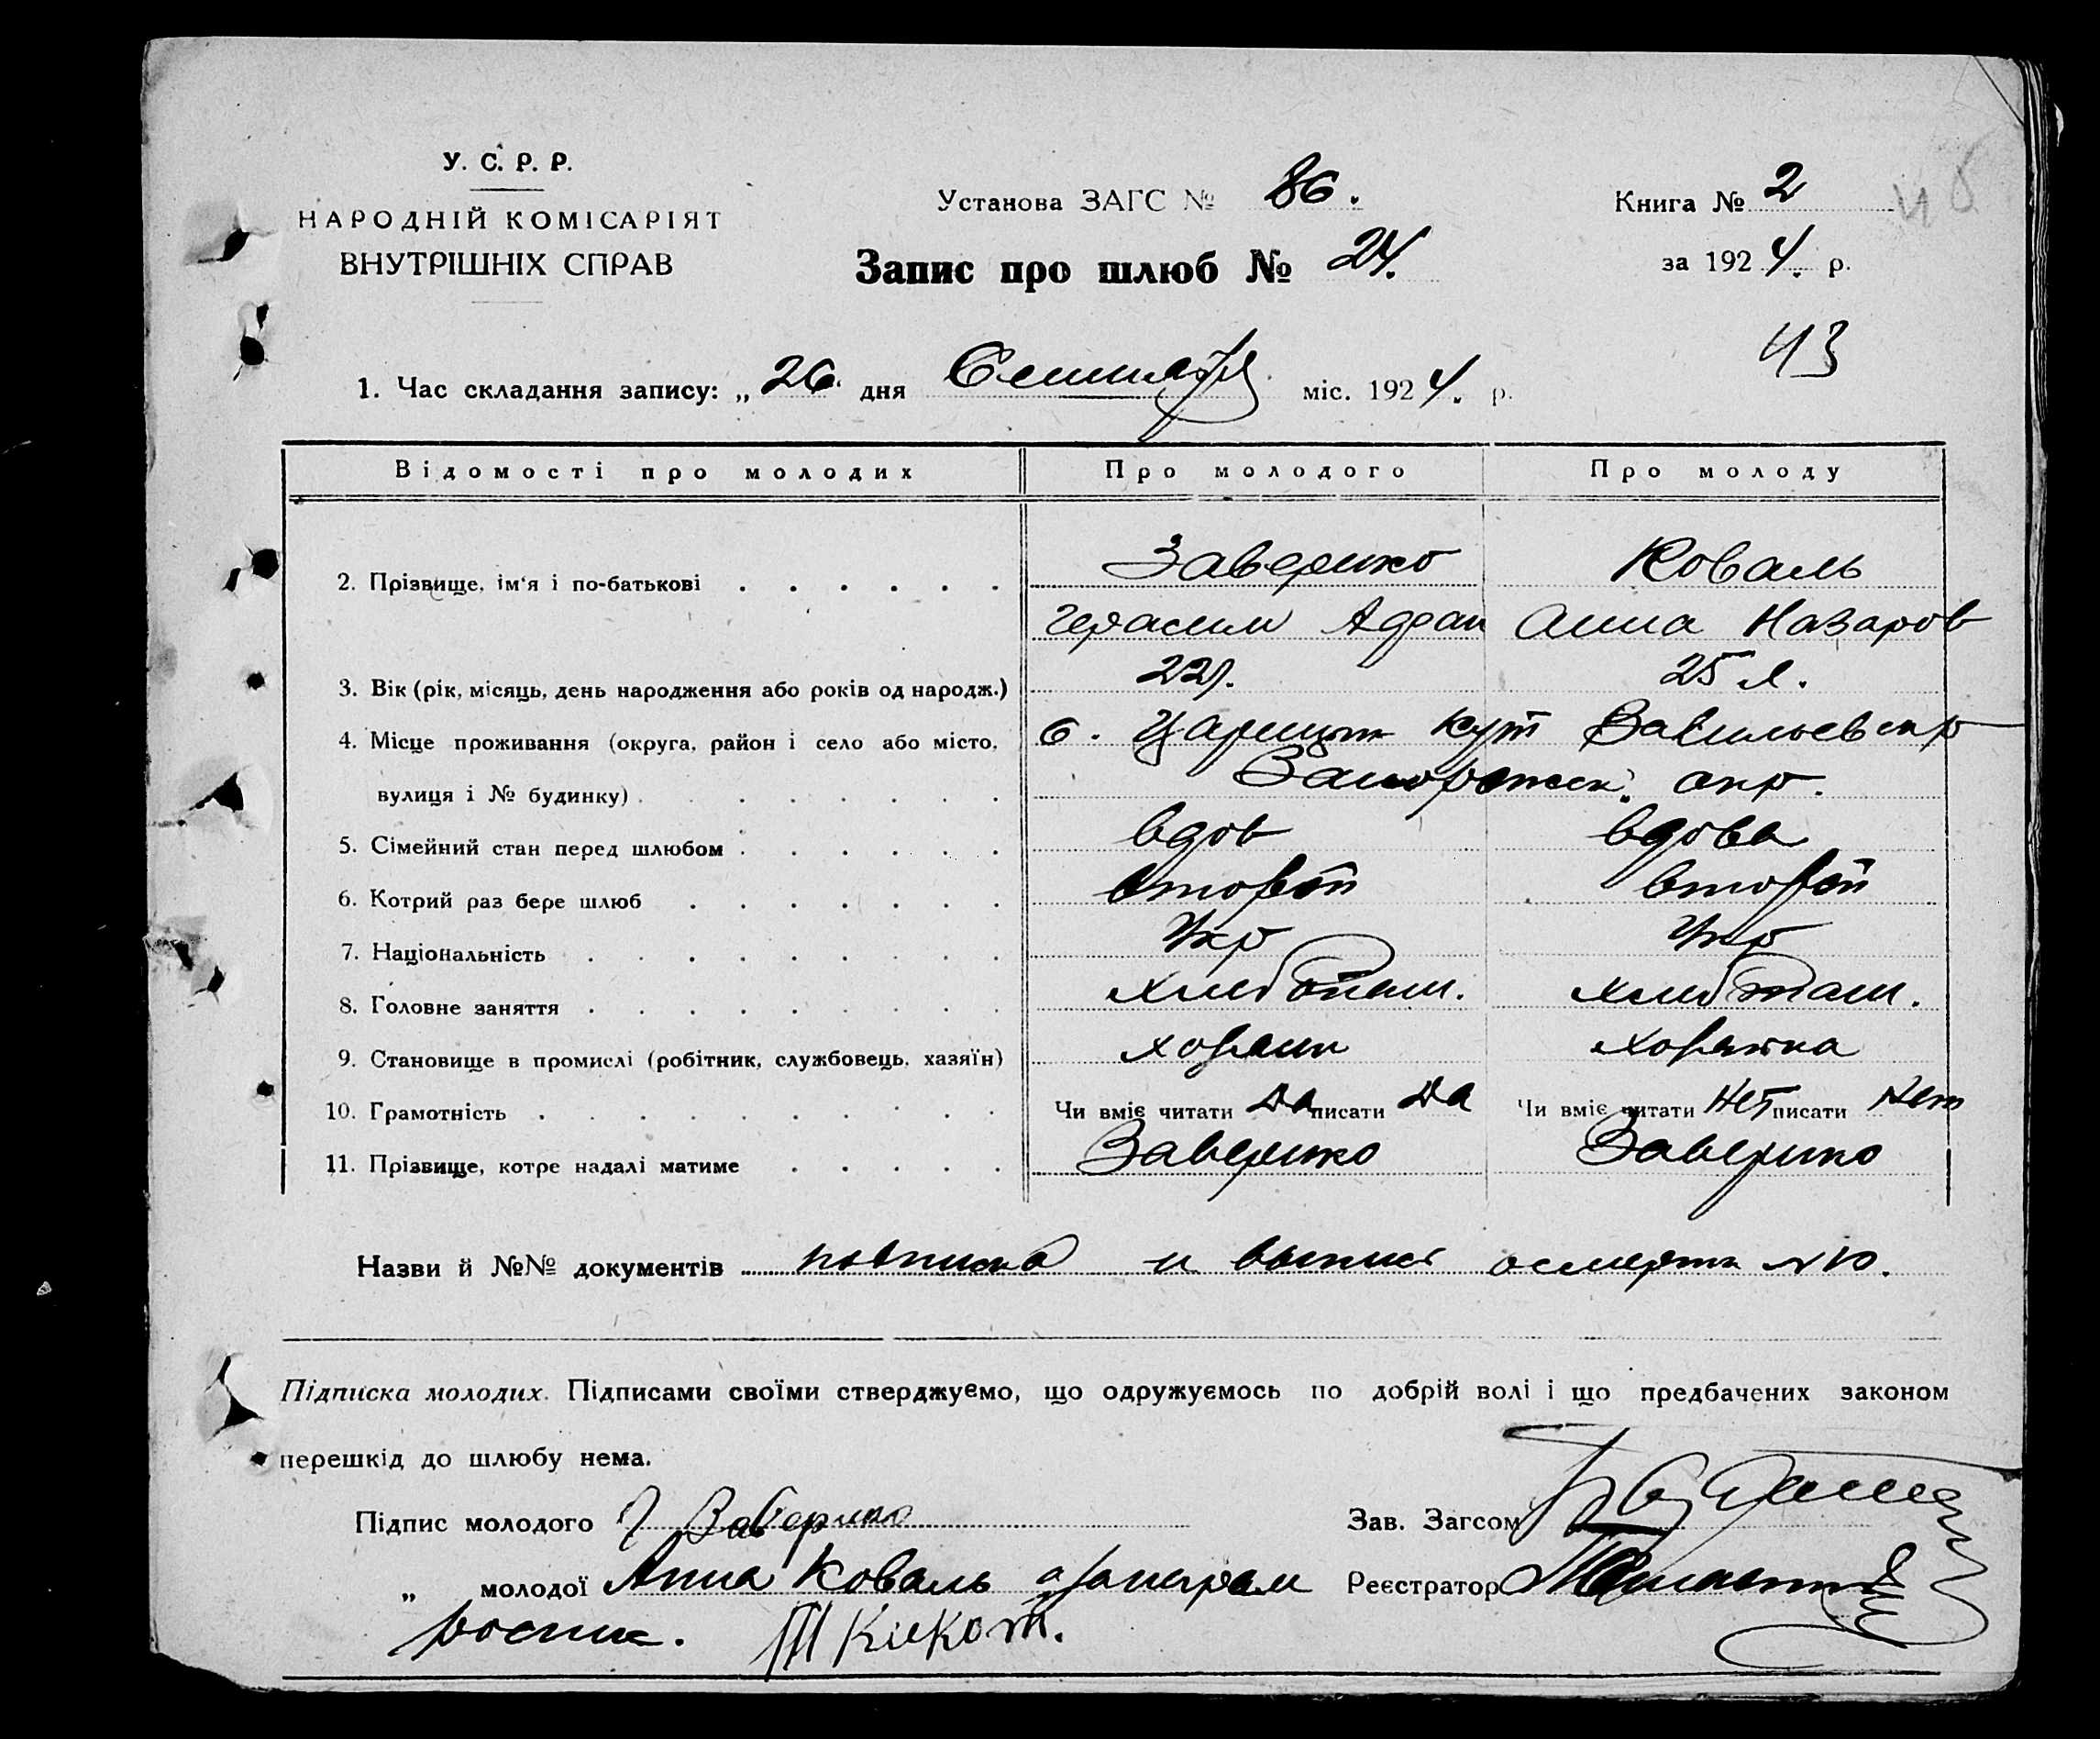 У. С. Р. Р.
НАРОДНІЙ КОМІСАРІЯТ
ВНУТРІШНІХ СПРАВ
Установа ЗАГС № 86.
Запис про шлюб № 24.
Книга № 2
за 1924. р.
43
1. Час складання запису: „26 дня Сентября міс. 1924. р.
Відомості про молодих Про молодого Про молоду
2. Прізвище, ім'я і по-батькові Заверико Коваль
Герасим Адриан Анна Назаров
3. Вік (рік, місяць, день народження або років од народж.) 22 25 л.
4. Місце проживання (округа, район і село або місто, с. Царицын Кут Васильевск р
вулиця і № будинку) Запорожск. окр.
5. Сімейний стан перед шлюбом вдов вдова
6. Котрий раз бере шлюб второй второй
7. Національність Укр Укр
8. Головне заняття хлебопаш. хлебопаш.
9. Становище в промислі (робітник, службовець, хазяїн)
10. Грамотність Чи вміє читати Да писати Да Чи вміє читати Нет писати Нет
11. Прізвище, котре надалі матиме Заверико Заверико
Назви й №№ документів подписка и выпись о смерти № 10.
Підписка молодих. Підписами своїми стверджуємо, що одружуємось по добрій волі і що предбачених законом
перешкід до шлюбу нема.
Підпис молодого Г Заверико Зав. Загсом
„ молодої Анна Коваль Реєстратор